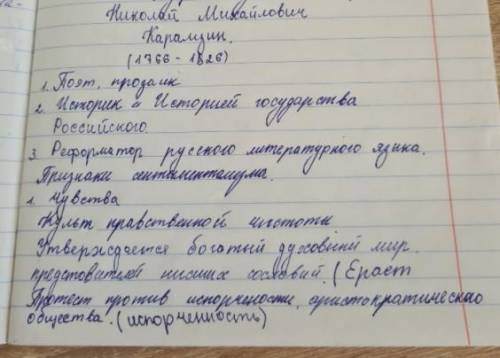 Николай Михайлович
Карамзин.
(1766 - 1826)
1. Поэт, прозаик
2. Историк и Историей государства
Российского
3. Реформатор русского литературного языка.
Признаки сентиментализма.
1. Чувства
Культ нравственной чистоты
Утверждается богатый духовный мир
представителей низших сословий. (Ераст
Протест против испорчености, аристократического
общества. (испорченность)